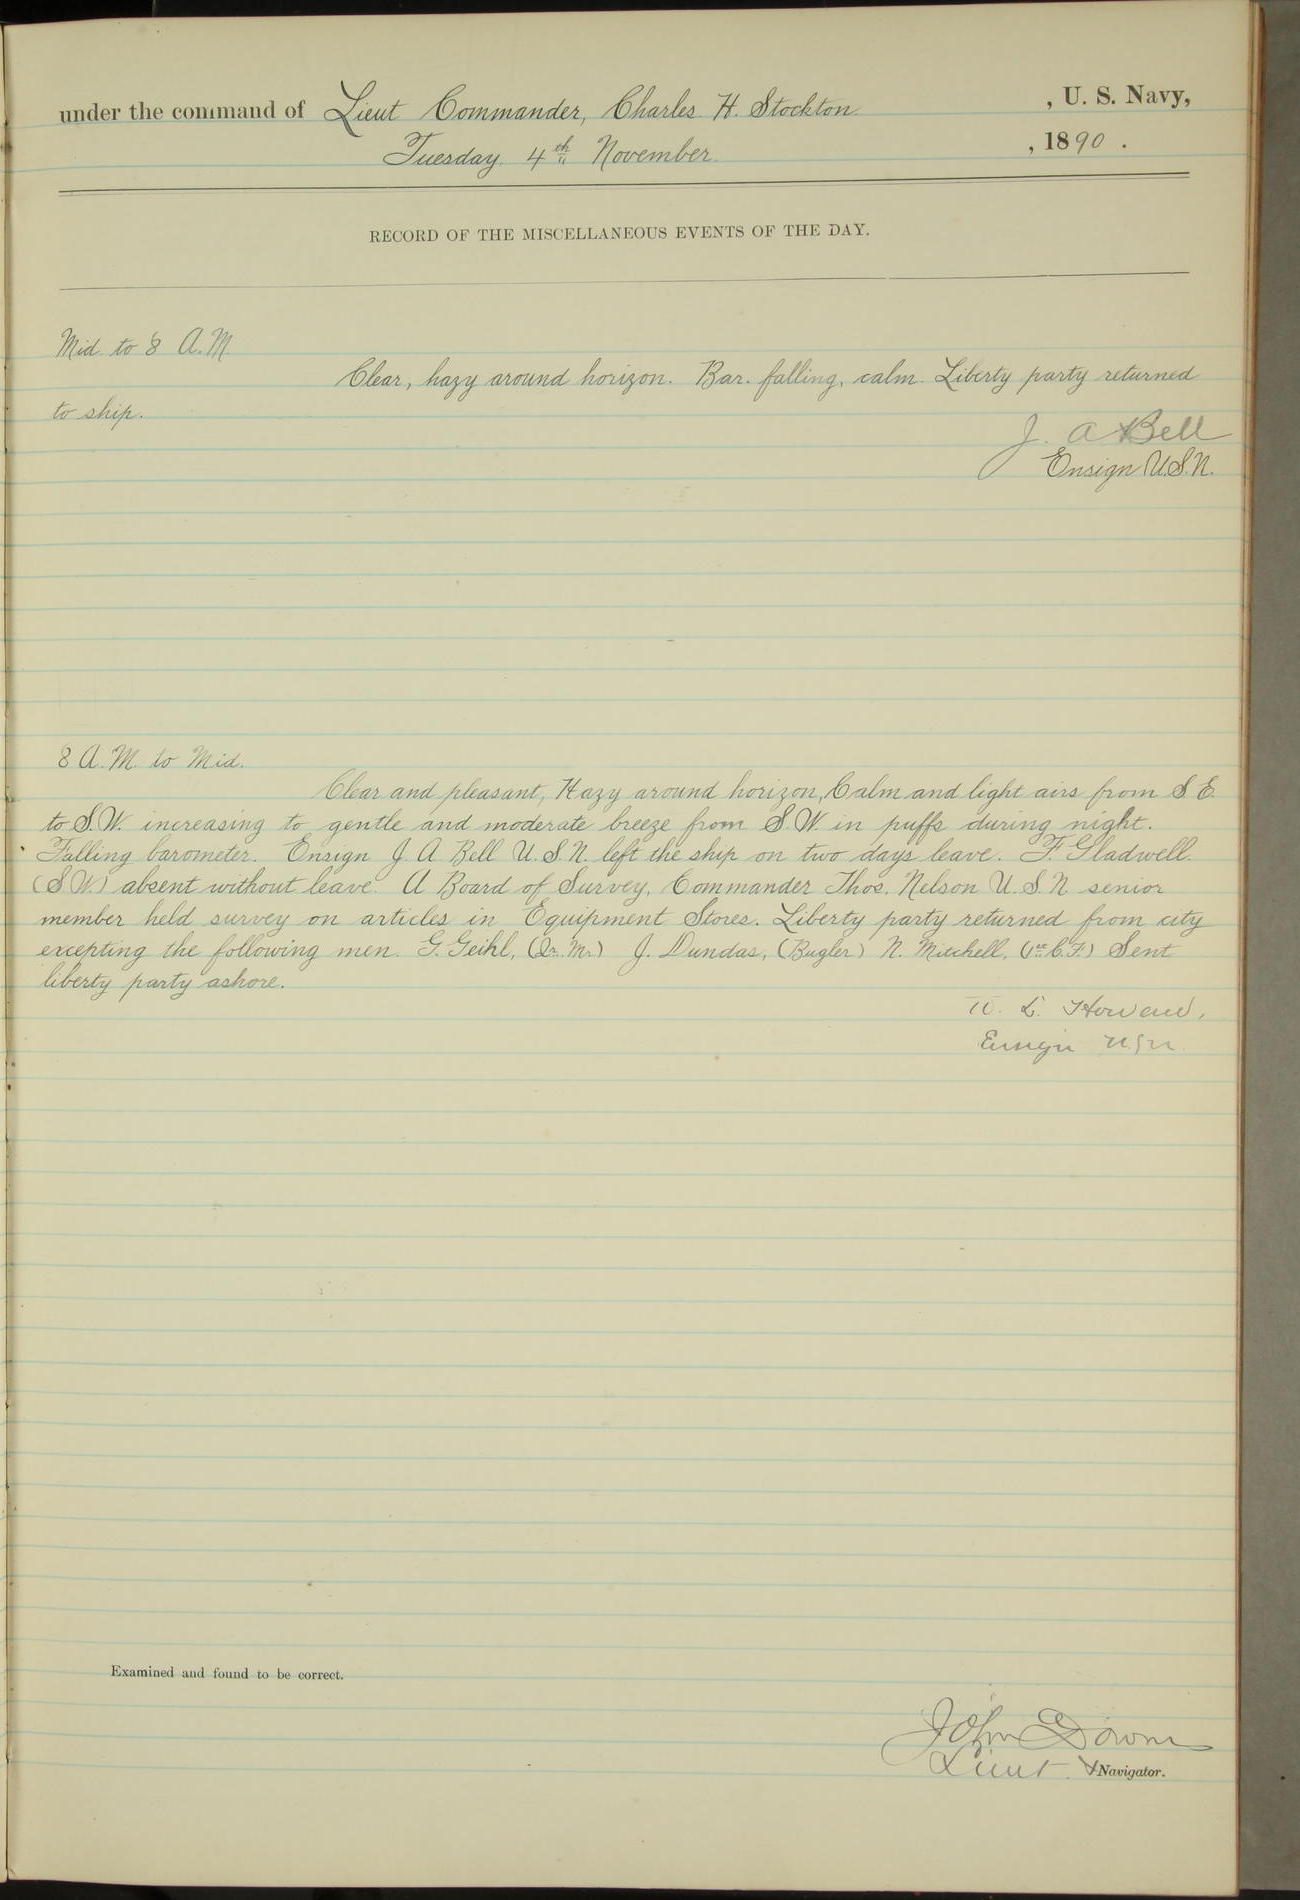 under the command of Lieut Commander, Charles H. Stockton , U. S. Navy,
Tuesday 4th November , 1890 .
RECORD OF THE MISCELLANEOUS EVENTS OF THE DAY.
Mid to 8 A.M.
Clear, hazy around horizon. Bar. falling, calm. Liberty party returned
to ship.
J. A. Bell
Ensign U.S.N.
8 A.M. to Mid.
Clear and pleasant, Hazy around horizon, Calm and light airs from S E
to S.W. increasing to gentle and moderate breeze from S W. in puffs during night.
Falling barometer. Ensign J. A Bell U.S.N. left the ship on two days leave. F. Gladwell.
(S.W.) absent without leave. A Board of Survey, Commander Thos. Nelson U.S.N senior
member held survey on articles in Equipment Stores. Liberty party returned from city
excepting the following men. G. Geihl, (Qr. Mr.) J. Dundas, (Bugler) N. Mitchell, (1st C.F.) Sent
liberty party ashore.
W. L. Howard,
Ensign USN.
Examined and found to be correct.
John Downes
Lieut. & Navigator.